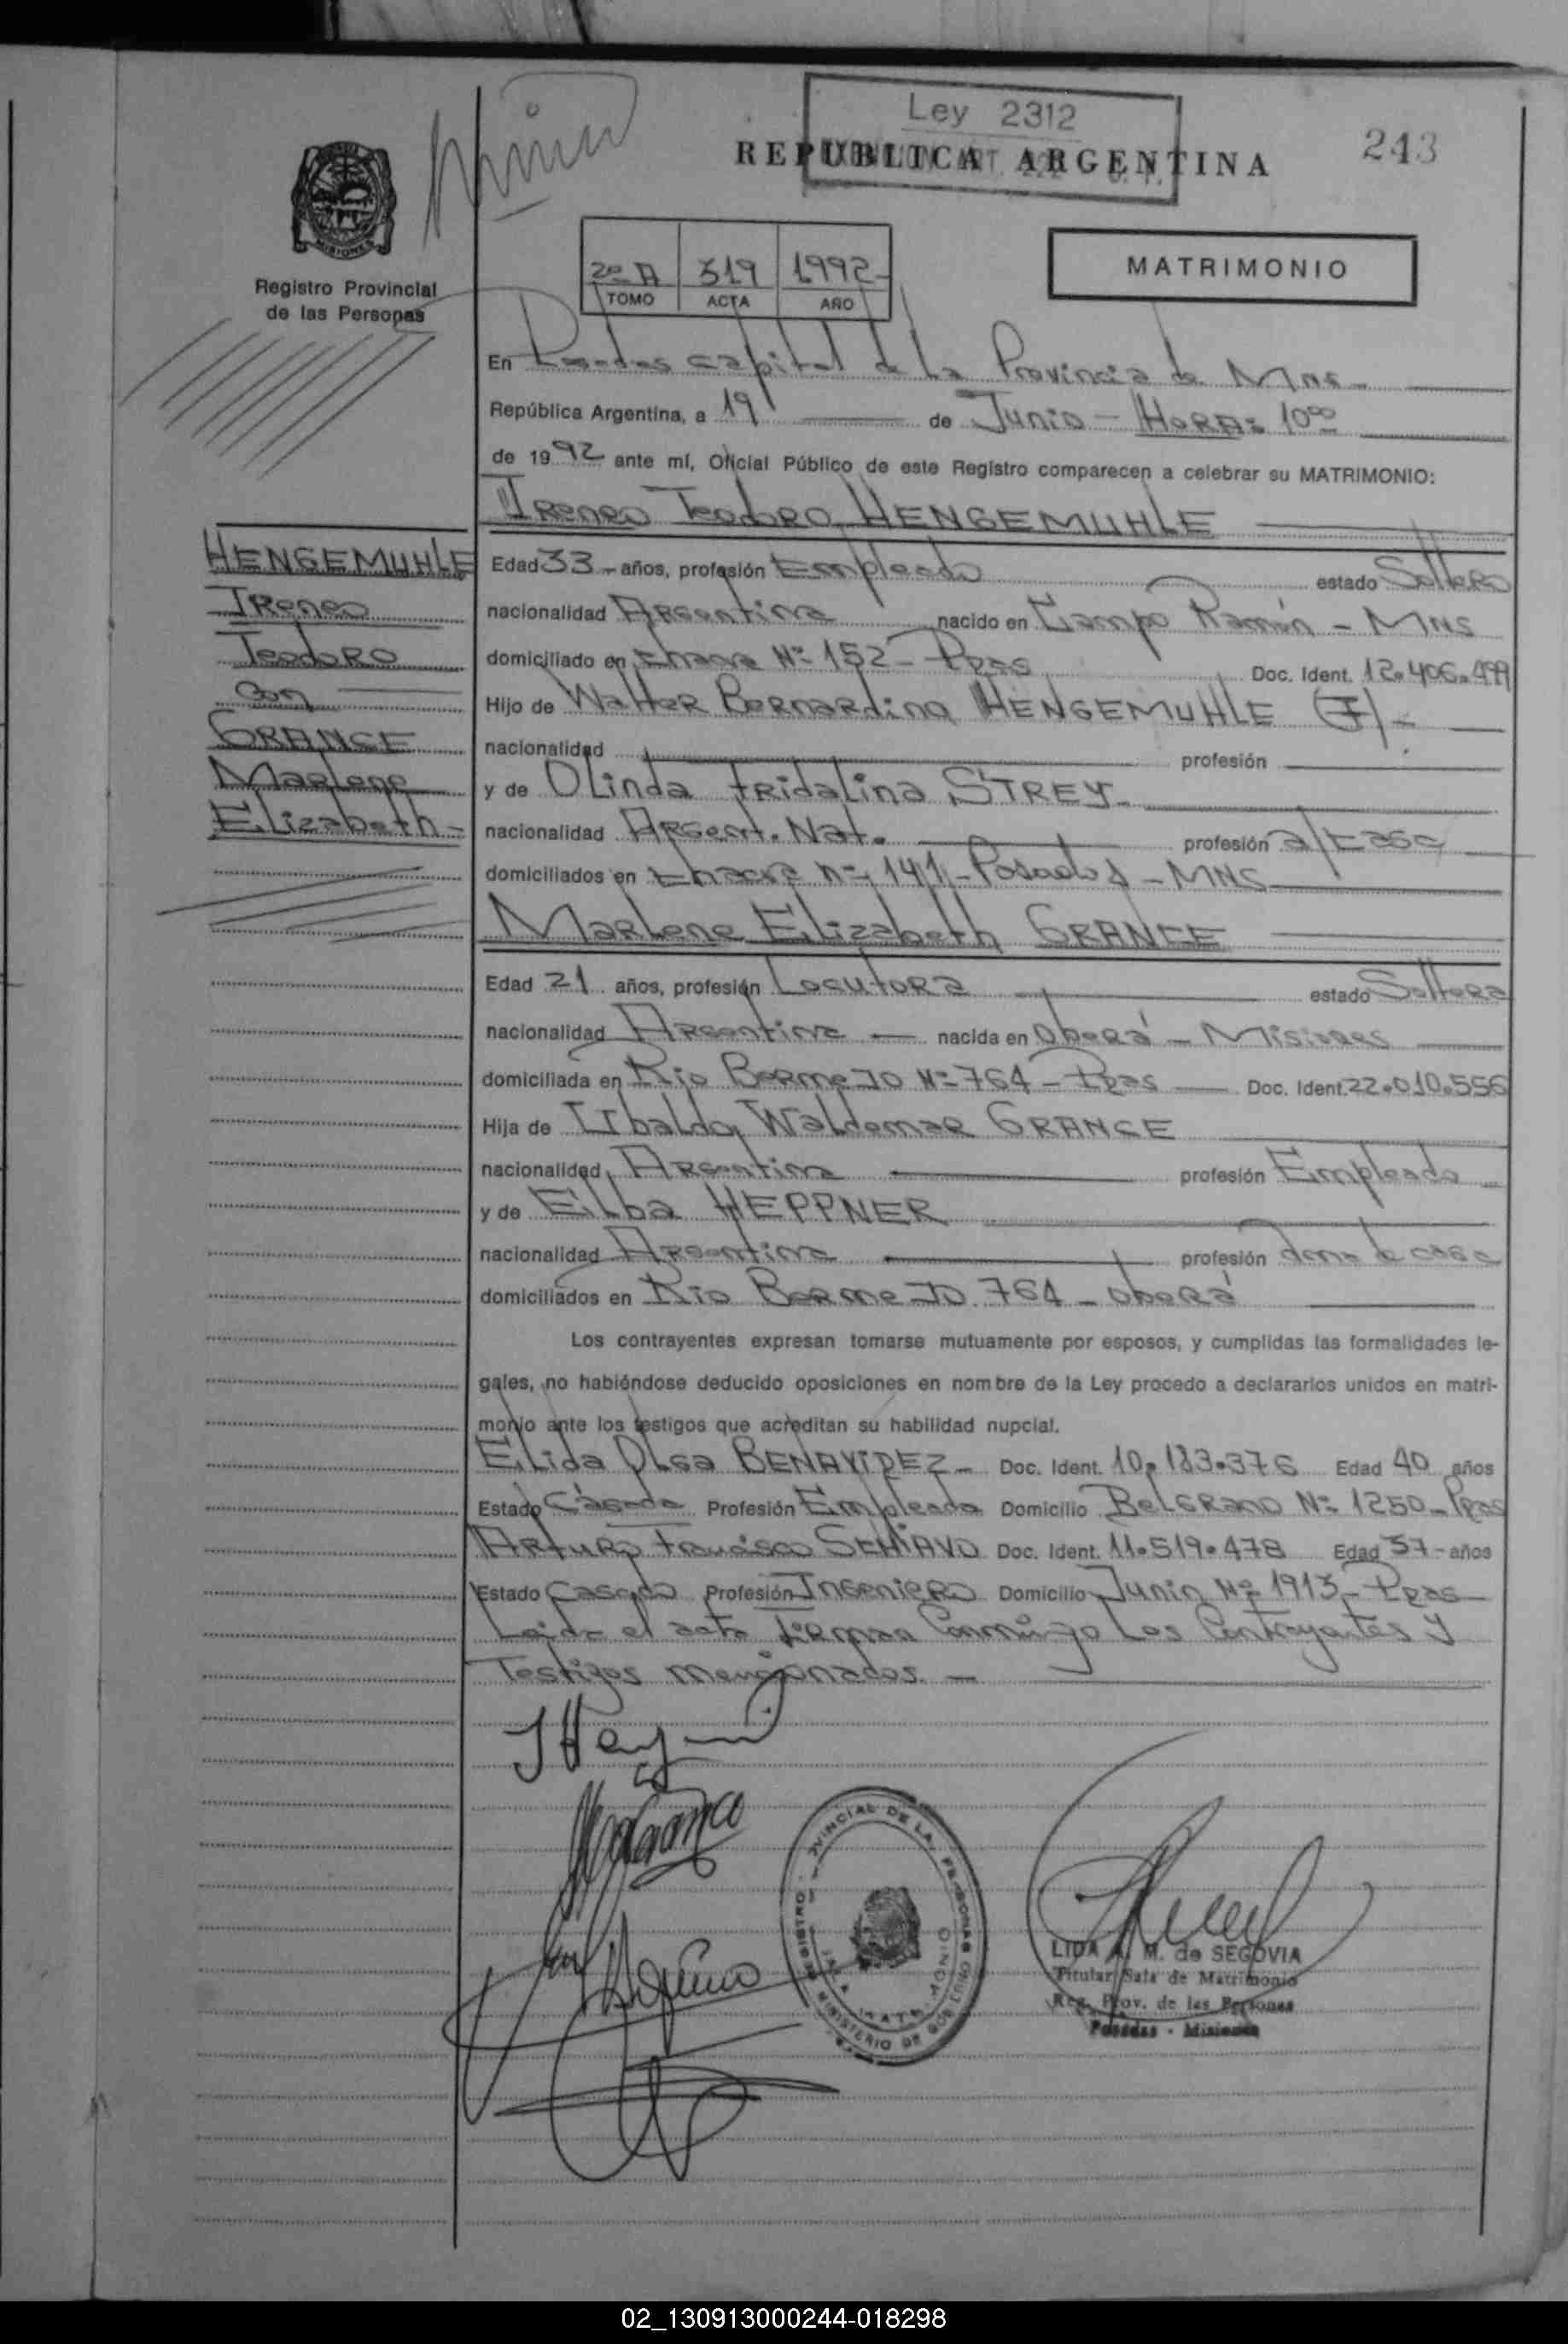 Ley 2312
REPUBLICA ARGENTINA
243
MISIONES
Registro Provincial
de las Personas
2º A 319 1992
TOMO ACTA AÑO
MATRIMONIO
En Posadas capital de La Provincia de MNS-
República Argentina, a 19 de Junio - HORA: 10⁰⁰
de 1992 ante mí, Oficial Público de este Registro comparecen a celebrar su MATRIMONIO:
Ireneo Teodoro HENGEMUHLE
HENGEMUHLE
Ireneo
Teodoro
con
GRANCE
Marlene
Elizabeth-
Edad 33- años, profesión Empleado estado Soltero
nacionalidad Argentina nacido en Campo Ramón - MNS
domiciliado en chacra Nº 152 - Pdas Doc. Ident. 12.406.499
Hijo de Walter Bernardino HENGEMUHLE (F)-
nacionalidad profesión
y de Olinda Fridalina STREY-
nacionalidad Argent. Nat. profesión a/casa
domiciliados en chacra nº 141 - Posadas - MNS
Marlene Elizabeth GRANCE
Edad 21 años, profesión Locutora estado Soltera
nacionalidad Argentina nacida en Oberá - Misiones
domiciliada en Río Bermejo Nº 764 - Pdas Doc. Ident. 22.010.556
Hija de Ubaldo Waldemar GRANCE
nacionalidad Argentina profesión Empleado
y de Elba HEPPNER
nacionalidad Argentina profesión ama de casa
domiciliados en Río Bermejo 764 - Oberá
Los contrayentes expresan tomarse mutuamente por esposos, y cumplidas las formalidades le-
gales, no habiéndose deducido oposiciones en nombre de la Ley procedo a declararlos unidos en matri-
monio ante los testigos que acreditan su habilidad nupcial.
Elida Olga BENAVIDEZ- Doc. Ident. 10.183.376 Edad 40 años
Estado Casada Profesión Empleada Domicilio Belgrano Nº 1250 - Pdas
Arturo Francisco SCHIAVO Doc. Ident. 11.519.478 Edad 37- años
Estado Casado Profesión Ingeniero Domicilio Junín Nº 1913 - Pdas
Leída el acta firman Conmigo Los Contrayentes y
Testigos mencionados. -
LIDA A. M. de SEGOVIA
Titular Sala de Matrimonio
Reg. Prov. de las Personas
Posadas - Misiones
02_130913000244-018298